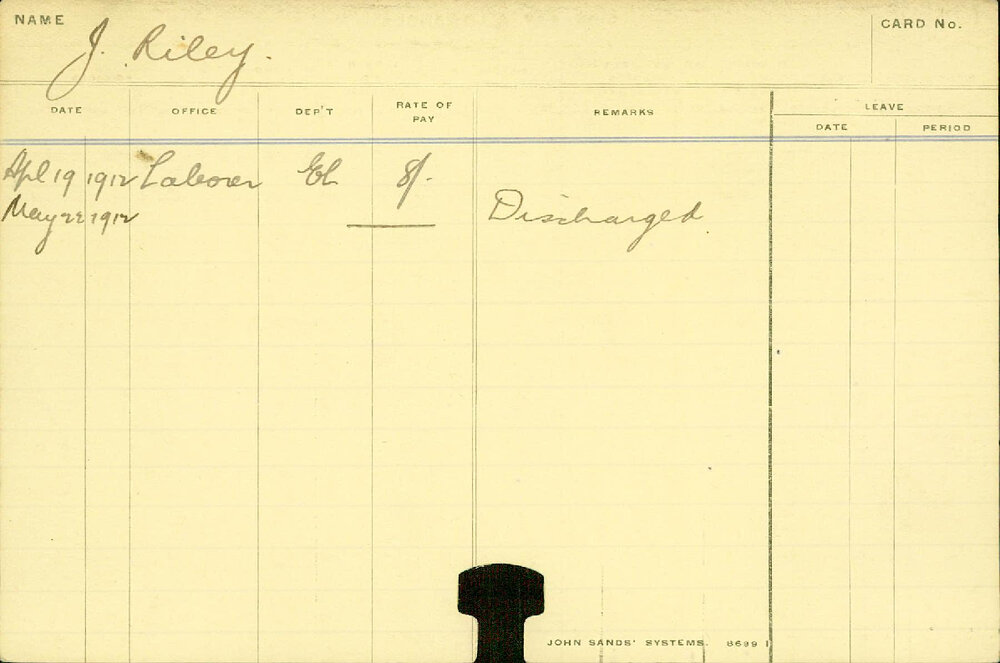 NAME J. Riley. CARD No.
DATE OFFICE DEP'T RATE OF PAY REMARKS LEAVE
DATE PERIOD
Apl 19 1912 Laborer EL 8/-
May 22 1912 Discharged
JOHN SANDS' SYSTEMS. 8699